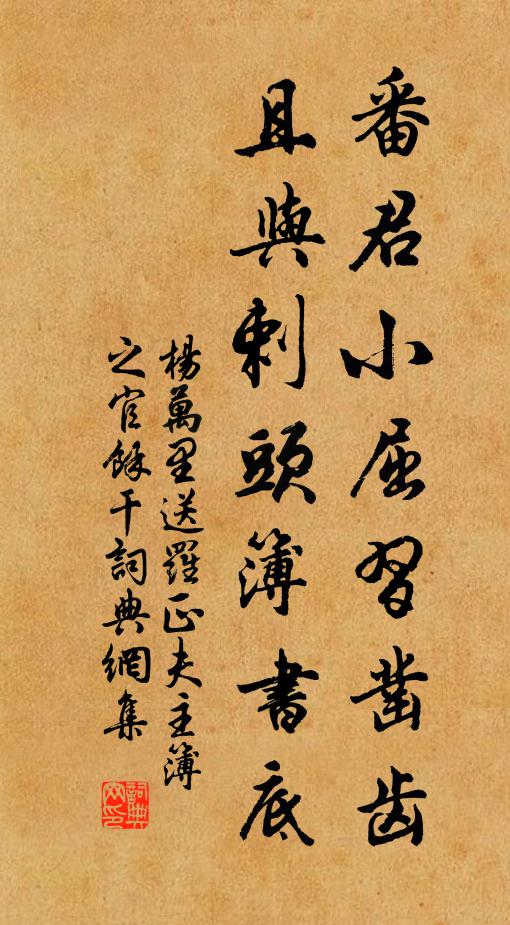 番君小屈習凿齿
且與刺頭簿書底
楊萬里送羅正夫主簿
之官餘干詞典網集
詞典网印